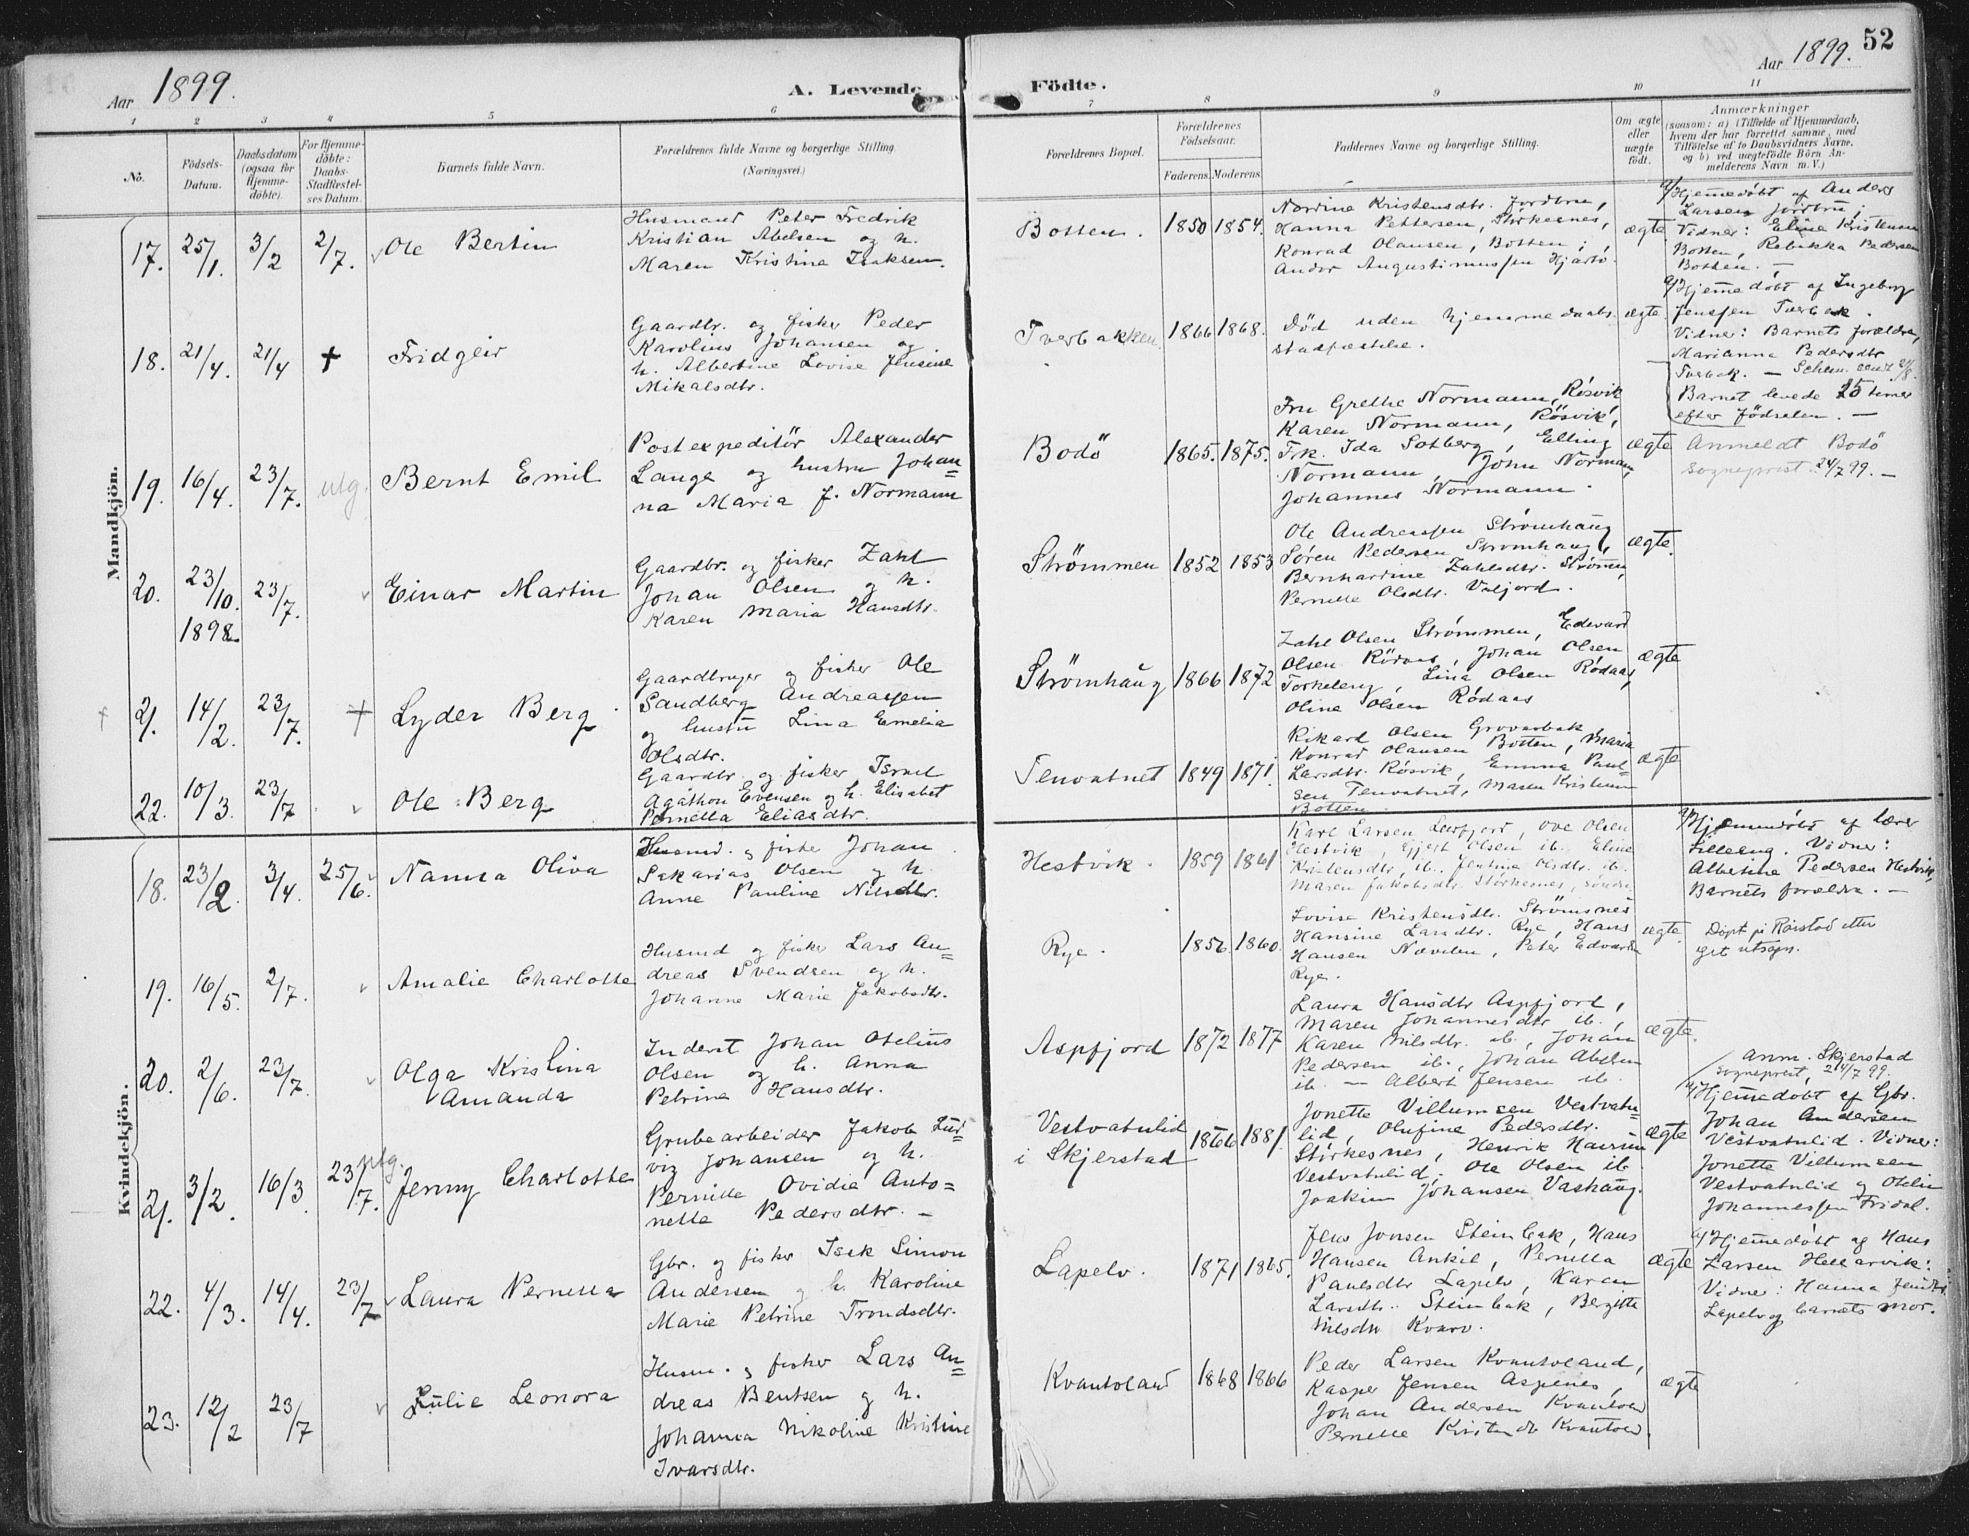 Aar 1899.
A. Levende Födte.
Aar 1899.
52
1 2 3 4 5 6 7 8 9 10 11
No.
Födsels-
Datum.
Daabsdatum
(ogsaa for
Hjemme-
döbte).
For Hjemme-
döbte:
Daabs-
Stadfæstel-
ses Datum.
Barnets fulde Navn.
Forældrenes fulde Navne og borgerlige Stilling.
(Næringsvei.)
Forældrenes Bopæl.
Forældrenes
Födselsaar.
Faderens. Moderens.
Faddernes Navne og borgerlig Stilling.
Om ægte
eller
uægte
födt.
Anmærkninger
(saasom: a) i Tilfælde af Hjemmedaab,
hvem der har forrettet samme, med
Tilföielse af to Daabsvidners Navne,
og b) ved uægtefödte Börn An-
melderens Navn m. V.)
Mandkjön.
17. 25/1. 3/2 2/7. Ole Bertin
Husmand Peter Fredrik
Kristian Abelsen og h.
Maren Kristine Isaksen.
Botten. 1850 1854.
Nordine Kristensdtr. Jordbru,
Hanna Pettersen, Störkesnes,
Konrad Olausen, Botten;
Andor Augustinussen Hjartö.
ægte
a/ Hjemedöbt af Anders
Larsen Jordbru;
Vidner: Eline Kristensen
Botten, Rebekka Pedersen
Botten. —
18. 21/4. 21/4 + Fridgeir
Gaardbr. og fisker Peder
Karolius Johansen og
h. Albertine Lovise Jensine
Mikalsdtr.
Tverbakken 1866 1868.
Död uden hjemmedaabs
stadfæstelse.
ægte
a/ Hjemedöbt af Ingeborg
Jenssen Tverbak.
Vidner: Barnets forældre,
Marianna Pedersdtr
Tverbak. —
Barnet levede 15 timer
efter födselen. —
19. 16/4. 23/7. utg. Bernt Emil
Postexpeditör Alexander
Lange og hustru Johan=
na Maria f. Normann
Bodö 1865. 1875.
Fru Grethe Normann, Rösvik
Karen Normann, Rösvik,
Frk. Ida Sotberg, Elling
Normann, John Normann,
Johannes Normann.
ægte
Anmeldt Bodö
sogneprest 24/7 99. —
20. 23/10. 1898. 23/7. Einar Martin
Gaardbr. og fisker Zahl
Johan Olsen og h.
Karen Maria Hansdtr.
Strömmen 1852 1853
Ole Andreassen Strömhaug
Sören Pedersen Strömhaug,
Bernhardine Zahlsdtr. Strömen,
Pernelle Olsdtr. Valjord.
ægte.
21. 14/2. 23/7. + Lyder Berg
Gaardbruger og fisker Ole
Sandberg Andreassen
og hustru Lina Emelia
Olsdtr.
Strömhaug 1866 1872
Zahl Olsen Strömmen, Edevard
Olsen Rödaas, Johan Olsen
Torkeleng, Lina Olsen Rödaas,
Oline Olsen Rödaas
ægte
22. 10/3. 23/7 Ole Berg
Gaardbr. og fisker Israel
Agathon Evensen og h. Elisabet
Pernella Eliasdtr.
Tenvatnet 1849 1871.
Rikard Olsen Grovarbak
Konrad Olausen Botten, Maria
Larsdtr. Rösvik, Emma Paul-
sen Tenvatnet, Maren Kristensen
Botten.
ægte
Kvindekjön.
18. 23/2. 3/4. 25/6. Nanna Oliva
Husmd. og fisker Johan
Sakarias Olsen og h.
Anne Pauline Nilsdtr.
Hestvik. 1859 1861
Karl Larsen Leirfjord, Ove Olsen
Hestvik, Ejjert Olsen ib. Eline
Kristensdtr. ib., Jentina Olsdtr. ib.
Maren Jakobsdtr. Störkesnes, söndre
a/ Hjemmedöbt af lærer
Lilleeng. Vidner:
Albertine Pedersen Hestvik,
Barnets forældre. —
19. 16/5. 2/7. Amalie Charlotte
Husmd og fisker Lars An=
dreas Svendsen og h.
Johanne Marie Jakobsdtr.
Rye. 1856 1860.
Lovise Kristensdtr. Strömsnes
Hansine Larsdtr. Rye, Hans
Hansen Nævelen, Peter Edvardsen
Rye.
ægte.
Döpt på Rörstad etter
eget utsagn.
20. 2/6. 23/7. Olga Kristina
Amanda
Inderst Johan Otelius
Olsen og h. Anna
Petrine Hansdtr.
Aspfjord 1872 1877
Laura Hansdtr Aspfjord,
Maren Johannesdtr ib.,
Karen Nilsdtr. ib., Johan
Pedersen ib., Johan Abelsen
ib. — Albert Jensen ib.
ægte.
21. 3/2. 16/3. 23/7. utg. Jenny Charlotte
Grubearbeider Jakob Lud=
vig Johansen og h.
Pernille Ovidie Anto=
nette Pedersdtr. —
Vestvatnlid
i Skjerstad 1866 1881.
Jonette Villumsen Vestvatn=
lid, Olufine Pedersdtr.
Störkesnes, Henrik Hansen
Vestvatnlid, Ole Olsen ib.
Joakim Johansen Vashaug.
ægte
anm. Skjerstad
sogneprest, 24/7 99.
a/ Hjemedöbt af Gbr.
Johan Andersen
Vestvatnlid. Vidner:
Jonette Villumsen
Vestvatnlid og Otelie
Johannessen Fridal.
22. 4/3. 14/4. 23/7 Laura Pernella
Gbr. og fisker Isak Simon
Andersen og h. Karoline
Marie Petrine Trondsdtr.
Lapelv. 1871 1865.
Jens Jonsen Steinbak, Hans
Hansen Ankil, Pernella
Paulsdtr Lapelv, Karen
Larsdtr. Steinbak, Bergitte
Nilsdtr Kvarv.
ægte
a/ Hjemedöbt og Hans
Larsen Hellarvik:
Vidner: Hanna Jensdtr.
Lapelv og barnets mor.
23. 12/2 23/7 Julie Leonora
Husm. og fisker Lars An=
dreas Bentsen og h.
Johanna Nikoline Kristine
Ivarsdtr.
Kvantoland 1868 1866
Peder Larsen Kvantoland,
Kasper Jensen Aspenes,
Johan Andersen Kvantold
Pernelle Kristensdtr Kvantold.
ægte